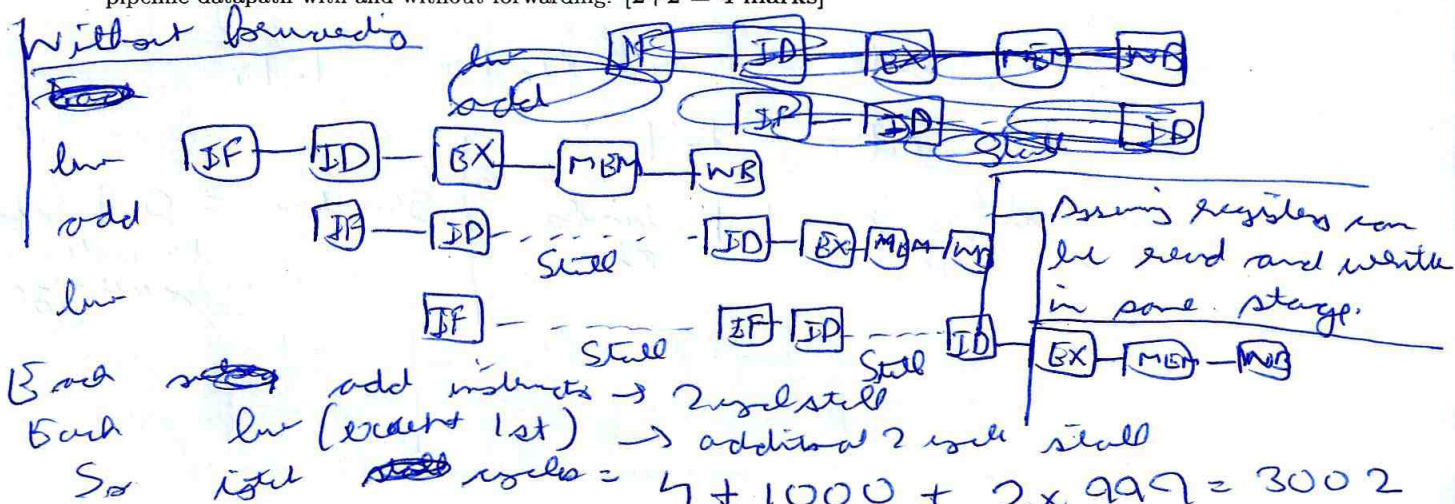 pipeline datapath with and without forwarding. [2+2 = 4 marks]
Without forwarding
lw IF ID EX MEM WB
add IF ID Stall ID
lw IF ID EX MEM WB
add IF ID Stall ID EX MEM WB
Assuming registers can
be read and write
in same stage.
lw IF Stall IF ID Stall ID EX MEM WB
Each add instructs → 2 cycle stall
Each lw (except 1st) → additional 2 cycle stall
So total cycles = 4 + 1000 + 2 x 999 = 3002